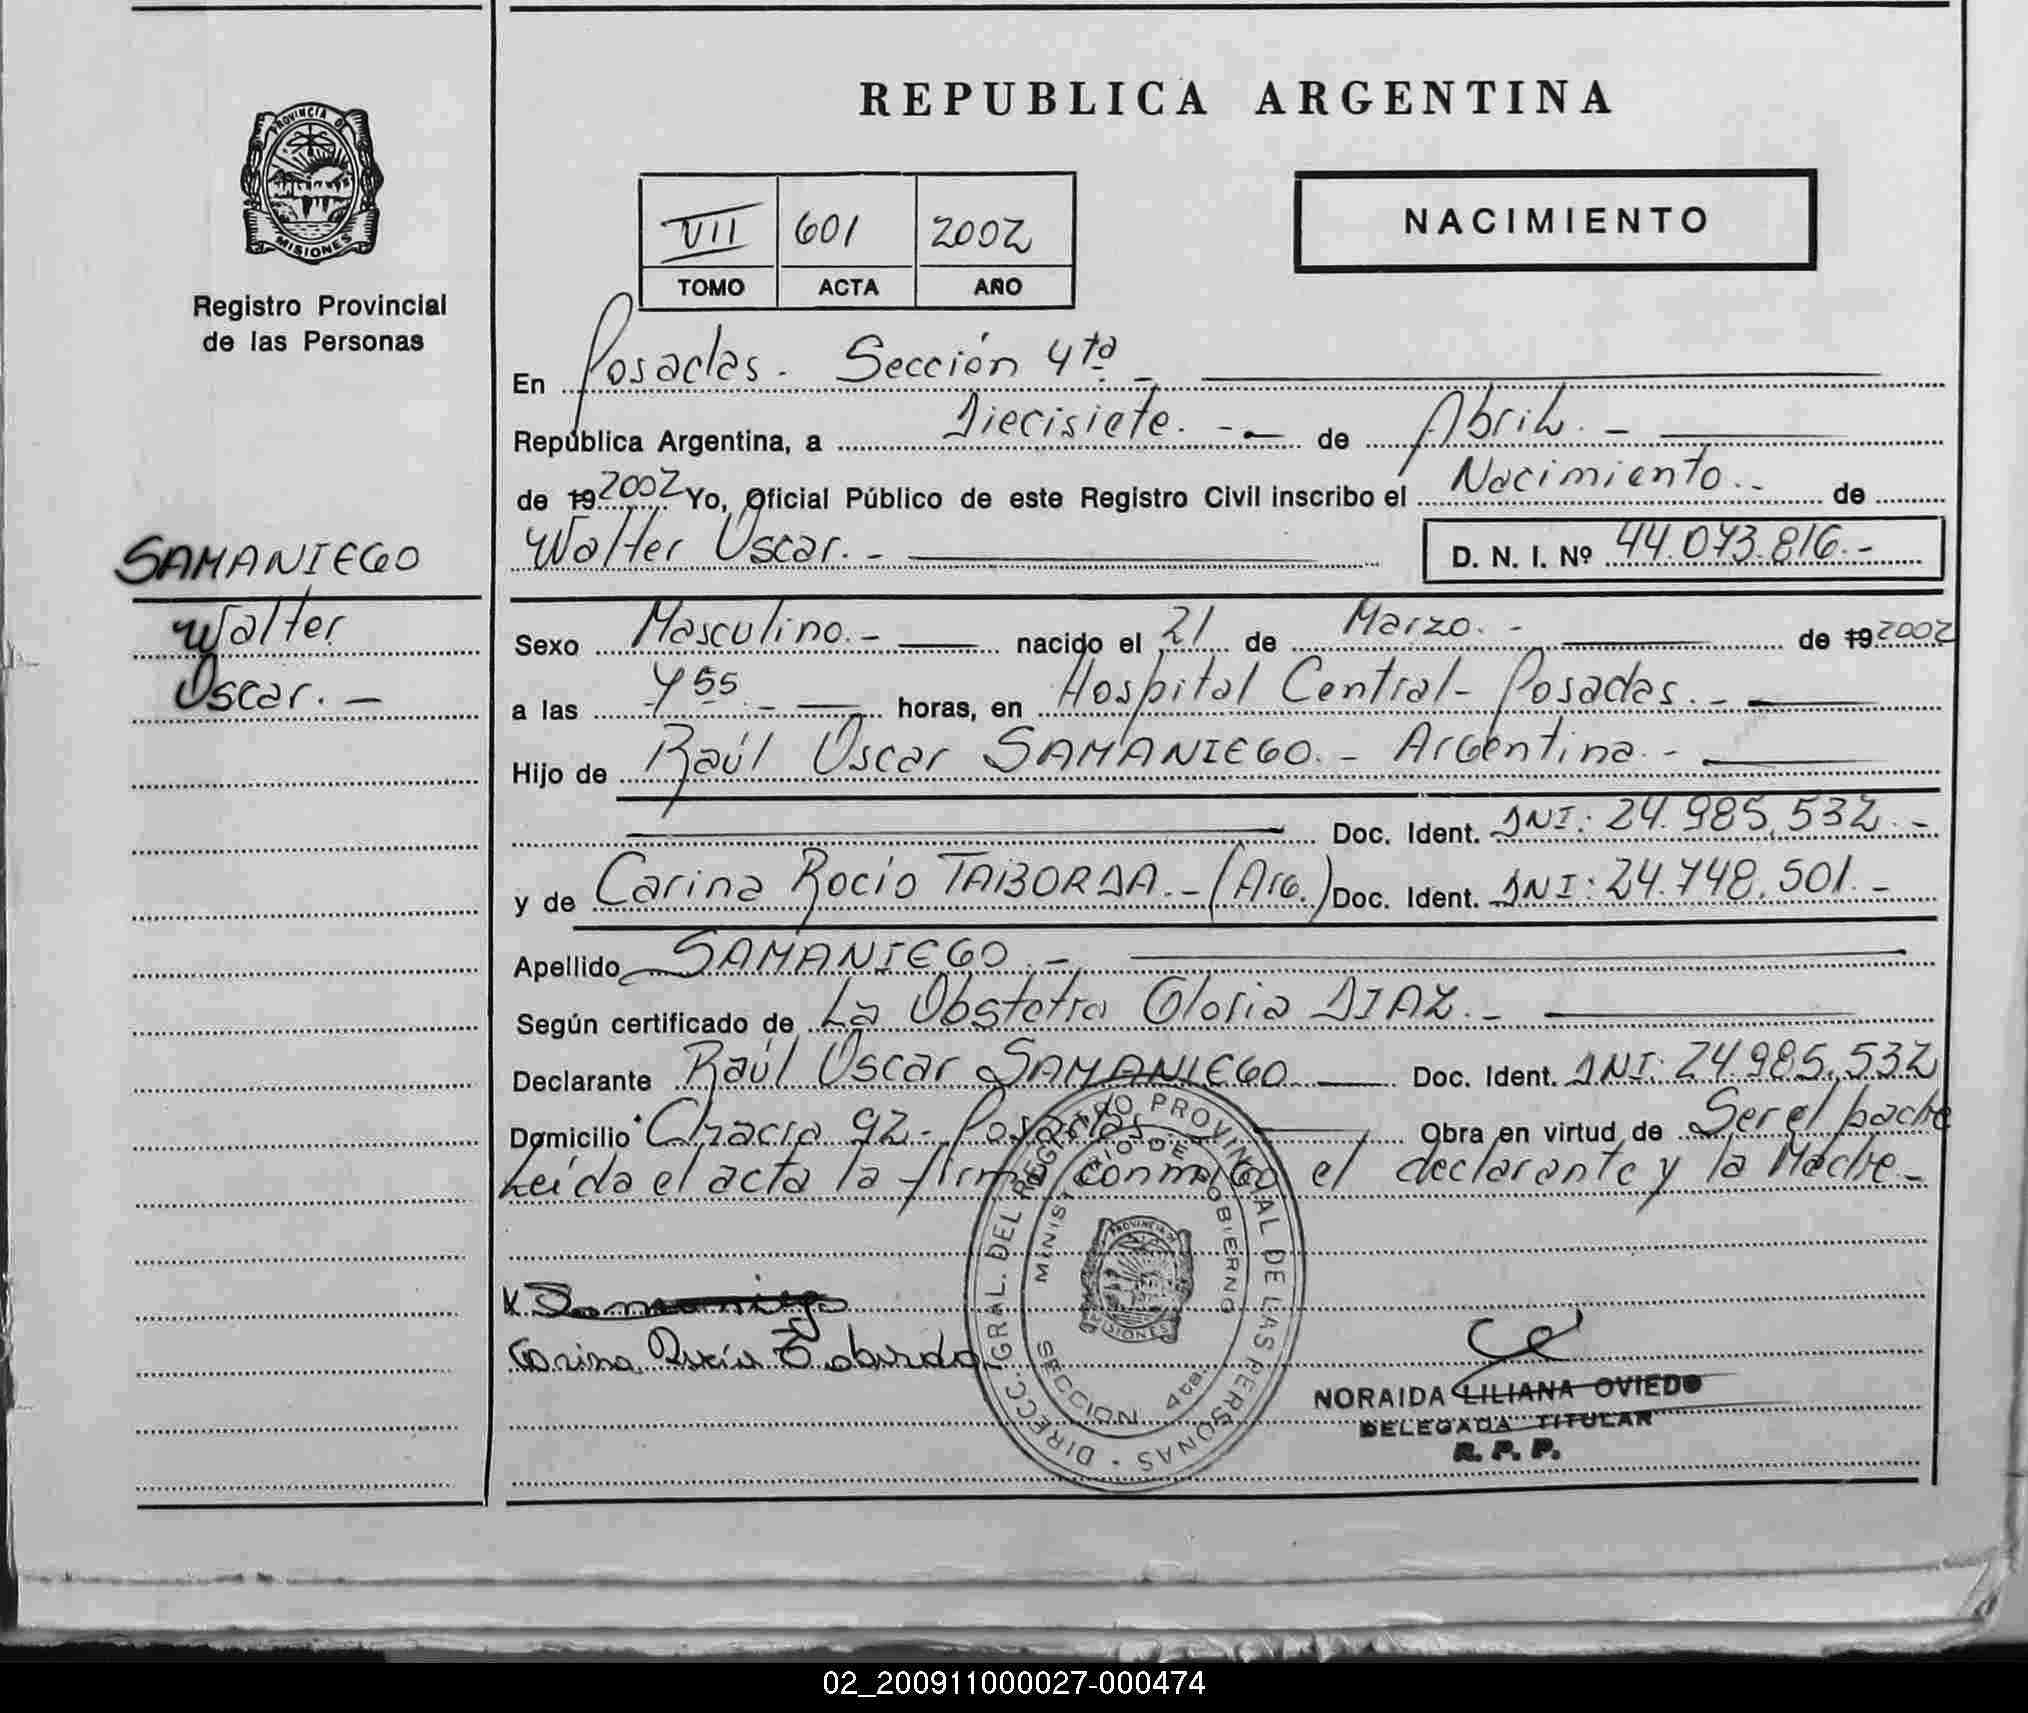 REPUBLICA ARGENTINA
PROVINCIA DE MISIONES
Registro Provincial
de las Personas
VII 601 2002
TOMO ACTA AÑO
NACIMIENTO
En Posadas. Sección 4ta -
República Argentina, a Diecisiete. - - de Abril. -
de 19 2002 Yo, Oficial Público de este Registro Civil inscribo el Nacimiento.. de
Walter Oscar. - D. N. I. Nº 44.073.816.-
SAMANIEGO
Walter
Oscar. -
Sexo Masculino. - nacido el 21 de Marzo. - de 19 2002
a las 7 55 - horas, en Hospital Central - Posadas. -
Hijo de Raúl Oscar SAMANIEGO. - Argentina. -
Doc. Ident. DNI: 24.985.532. -
y de Carina Rocío TABORDA. - (Arg.) Doc. Ident. DNI: 24.748.501. -
Apellido SAMANIEGO. -
Según certificado de La Obstetra Gloria DIAZ. -
Declarante Raúl Oscar SAMANIEGO Doc. Ident. DNI: 24.985.532
Domicilio Chacra 92 - Posadas. Obra en virtud de Ser el padre
Leída el acta la firma conmigo el declarante y la Madre -
Samaniego
Carina Rocío Taborda
DIRECC. GRAL. DEL REGISTRO PROVINCIAL DE LAS PERSONAS
MINISTERIO DE GOBIERNO
PROVINCIA
MISIONES
SECCION 4ta.
NORAIDA LILIANA OVIEDO
DELEGADA TITULAR
R. P. P.
02_200911000027-000474